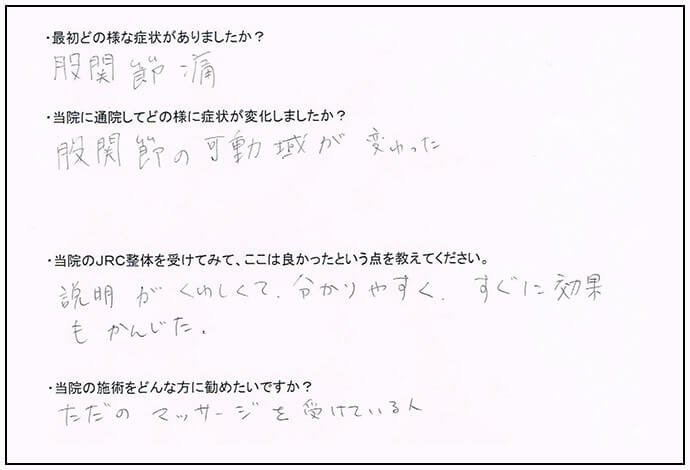 ・最初どの様な症状がありましたか？
股関節痛
・当院に通院してどの様に症状が変化しましたか？
股関節の可動域が 変わった
・当院のJRC整体を受けてみて、ここは良かったという点を教えてください。
説明がくわしくて、分かりやすく、すぐに効果
もかんじた。
・当院の施術をどんな方に勧めたいですか？
ただのマッサージを受けている人